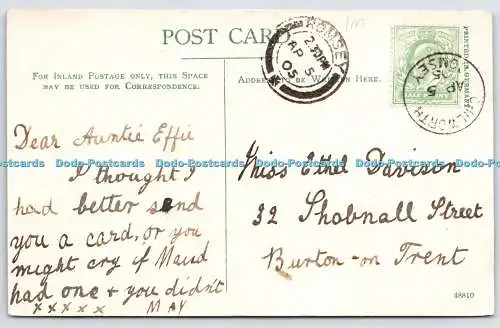 POST CARD
FOR INLAND POSTAGE ONLY, THIS SPACE
MAY BE USED FOR CORRESPONDENCE.
ADDRESS TO BE WRITTEN HERE.
PRINTED IN GERMANY
ROMSEY
2.30PM
AP 5
05
ROMSEY
AP 5
05
Dear Auntie Effie
I thought I
had better send
you a card, or you
might cry if Maud
had one & you didn't
x x x x x MAY
Miss Ethel Davison
32 Shobnall Street
Burton-on Trent
48810
Dodo-Postcards Dodo-Postcards Dodo-Postcards Dodo-Postcards Dodo-Postcards Dodo-Postcards